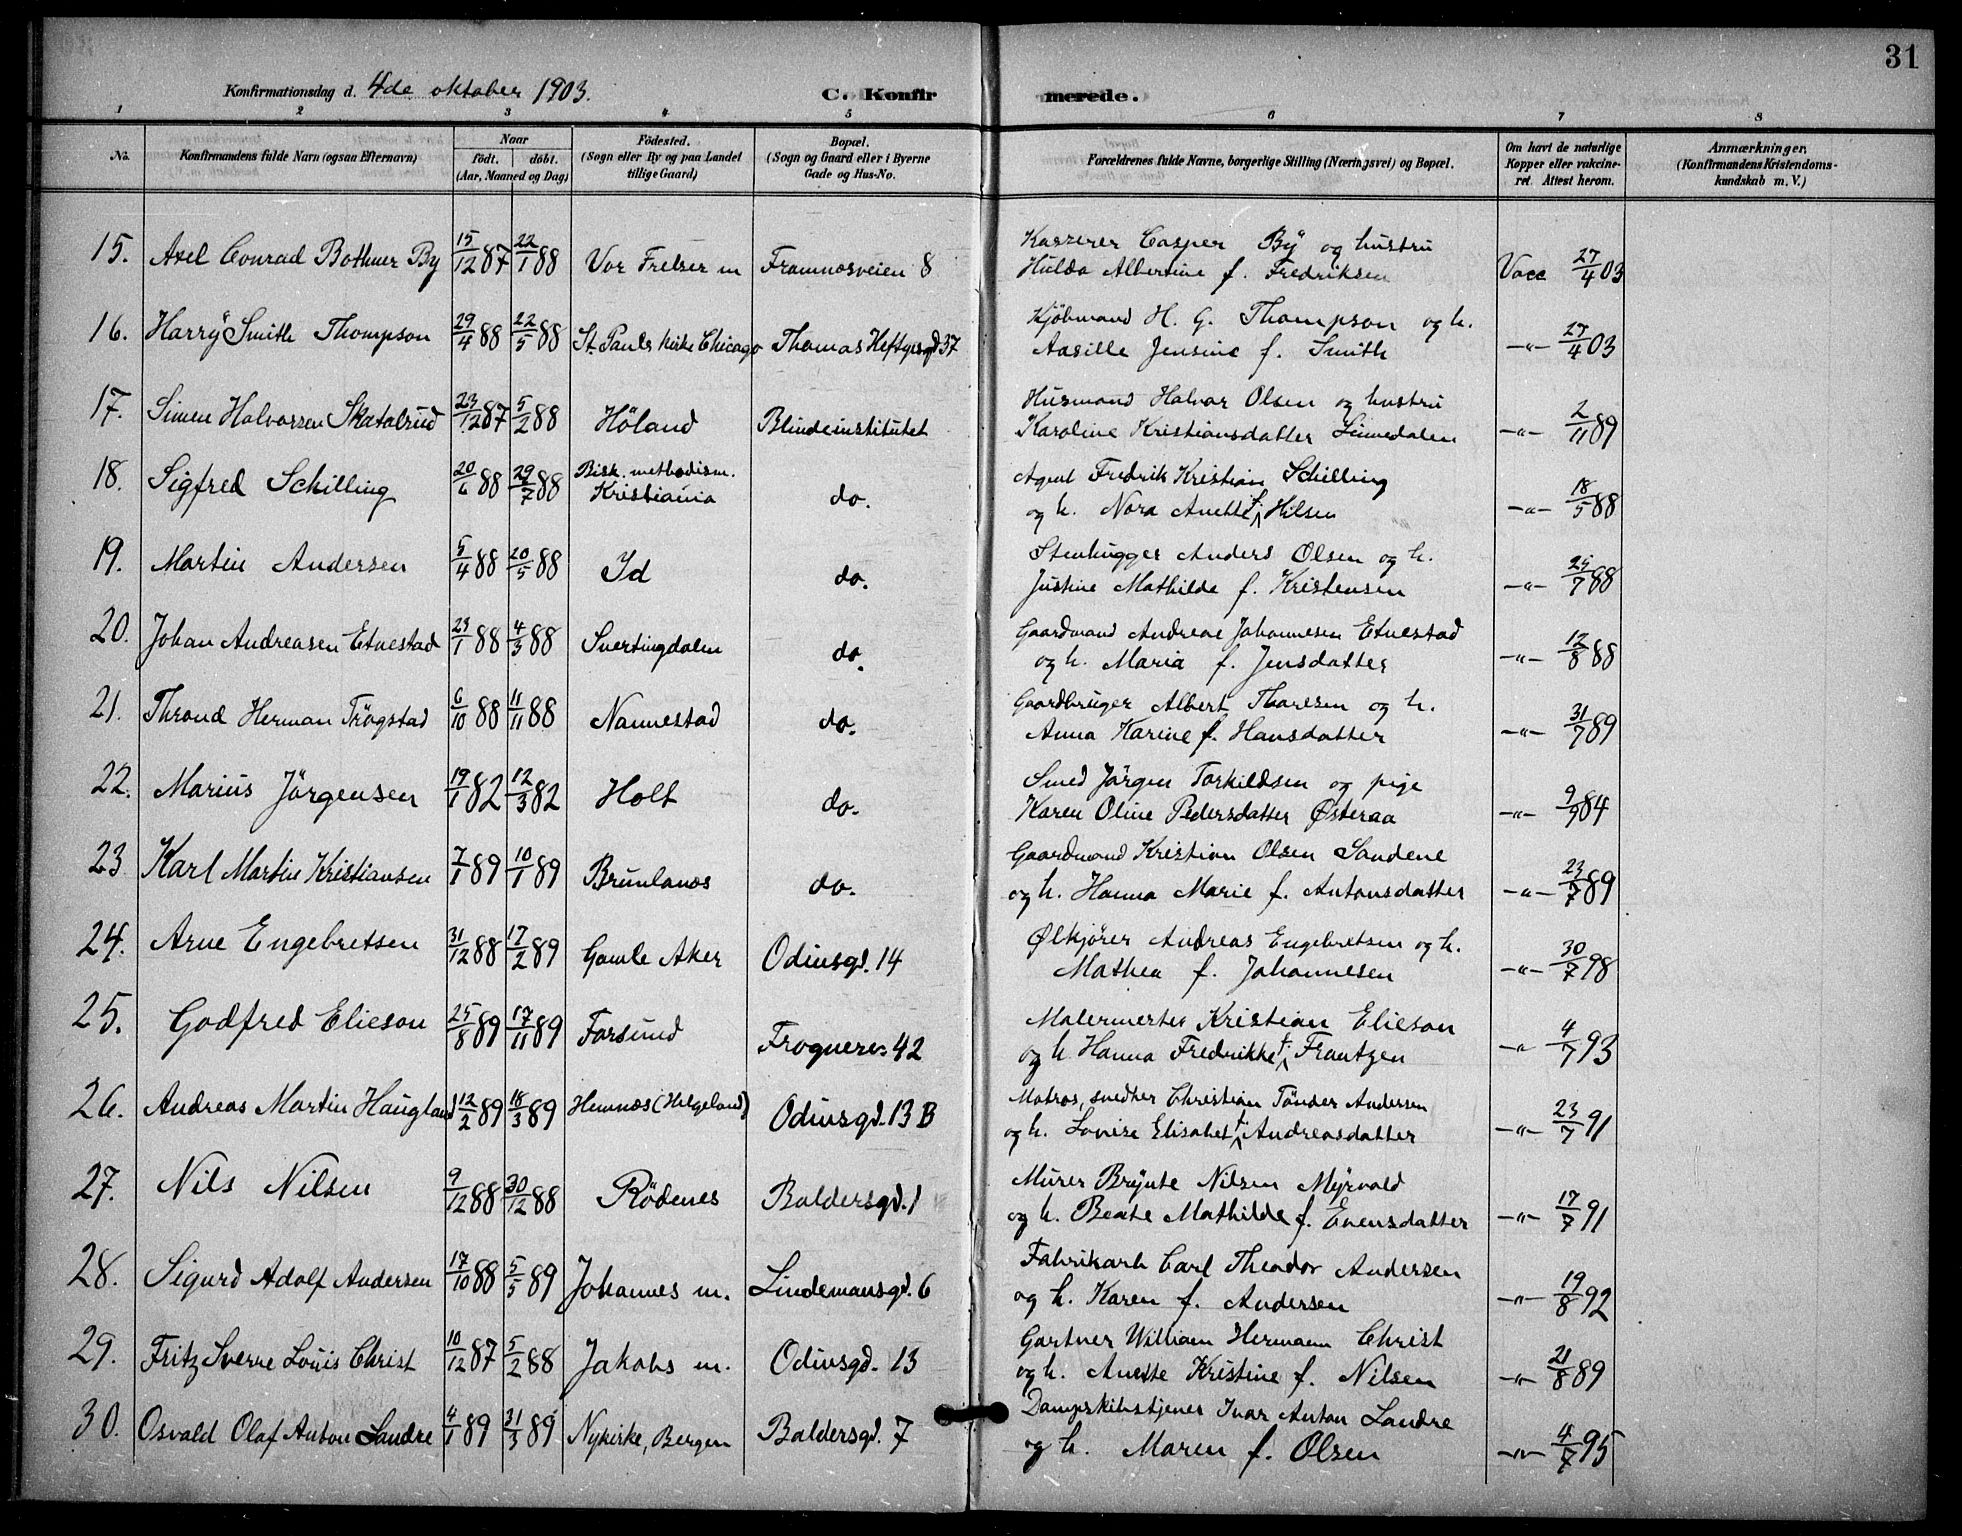 31
Konfirmationsdag d. 4de oktober 1903.
C. Konfirmerede.
1 2 3 4 5 6 7 8
No. Konfirmandens fulde Navn (ogsaa Efternavn) Naar födt. döbt. (Aar, Maaned og Dag) Födested. (Sogn eller By og paa Landet tillige Gaard) Bopæl. (Sogn og Gaard eller i Byerne Gade og Hus-No. Forældrenes fulde Navne, borgerlige Stilling (Næringsvei) og Bopæl. Om havt de naturlige Kopper eller vakcineret. Attest herom. Anmærkninger. (Konfirmandens Kristendomskundskab m. V.)
15. Axel Conrad Bothner By 15/12 87 22/1 88 Vor Frelser m Framnæsveien 8 Kasserer Casper By og hustru
Hulda Albertine f. Fredriksen Vacc 27/4 03
16. Harry Smith Thompson 29/4 88 22/5 88 St. Pauls kirke Chicago Thomas Heftyesgd 37 Kjöbmand H. G. Thompson og h.
Aasille Jensine f. Smith -"- 27/4 03
17. Simen Halvorsen Skatalrud 23/12 87 5/2 88 Höland Blindeinstitutet Husmand Halvor Olsen og hustru
Karoline Kristiansdatter Linnedalen -"- 2/11 89
18. Sigfred Schilling 20/6 88 29/7 88 Bisk. methodism. Kristiania do. Agent Fredrik Kristian Schilling
og h. Nora Anette f. Hilsen -"- 18/5 88
19. Martin Andersen 5/4 88 20/5 88 Id do. Stenhugger Anders Olsen og h.
Justine Mathilde f. Kristensen -"- 25/7 88
20. Johan Andreasen Etnestad 23/1 88 4/3 88 Snertingdalen do. Gaardmand Andreas Johannesen Etnestad
og h. Maria f. Jensdatter -"- 12/8 88
21. Thrond Herman Trögstad 6/10 88 11/11 88 Nannestad do. Gaardbruger Albert Thoresen og h.
Anna Karine f. Hansdatter -"- 31/7 89
22. Marius Jörgensen 19/1 82 12/3 82 Holt do. Smed Jörgen Torkildsen og pige
Karen Oline Pedersdatter Østeraa -"- 9/9 84
23 Karl Martin Kristiansen 7/1 89 10/1 89 Brunlanes do. Gaardmand Kristian Olsen Sandene
og h. Hanna Marie f. Antonsdatter -"- 23/7 89
24. Arne Engebretsen 31/12 88 17/2 89 Gamle Aker Odinsgd. 14 Ølkjører Andreas Engebretsen og h.
Mathea f. Johannesen -"- 30/7 98
25. Godfred Elieson 25/8 89 17/11 89 Farsund Frognerv. 42 Malermester Kristian Elieson
og h Hanna Fredrikke f. Frantzen -"- 4/7 93
26. Andreas Martin Haugland 12/2 89 18/3 89 Hemnæs (Helgeland) Odinsgd. 13 B Matros, snedker Christian Tönder Andersen
og h. Lovise Elisabet f. Andreasdatter -"- 23/7 91
27. Nils Nilsen 9/12 88 30/12 88 Rödenes Baldersgd. 1 Murer Brynte Nilsen Myrvold
og h. Beate Mathilde f. Evensdatter -"- 17/7 91
28. Sigurd Adolf Andersen 17/10 88 5/5 89 Johannes m. Lindemansgd. 6 Fabrikarb Carl Theodor Andersen
og h. Karen f. Andersen -"- 19/8 92
29. Fritz Sverre Louis Christ 10/12 87 5/2 88 Jakobs m. Odinsgd. 13 Gartner William Hermann Christ
og h. Anette Kristine f. Nilsen -"- 21/8 89
30. Osvald Olaf Anton Landre 4/1 89 31/3 89 Nykirke, Bergen Baldersgd. 7 Dampskibstjener Ivar Anton Landre
og h. Maren f. Olsen -"- 4/7 95